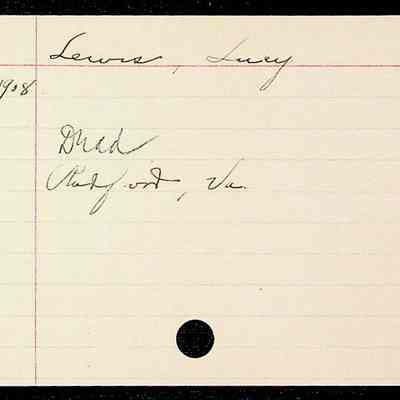 Lewis, Lucy
1908
Dead
Radford, Va.